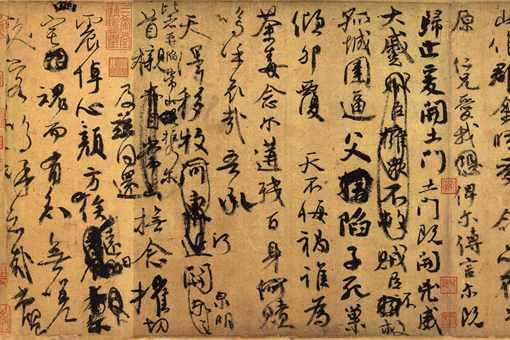 原仁兄愛我俾爾傳言爾既
歸止爰開土門土門既開凶威
大蹙賊臣不救
孤城圍逼父陷子死巢
傾卵覆天不悔禍誰為
荼毒念爾遘殘百身何贖
嗚乎哀哉吾承
天澤移牧河關泉明
比者再陷常山攜爾
首櫬及茲同還撫念摧切
震悼心顏方俟遠日
宅魂而有知無嗟
久客嗚呼哀哉尚饗